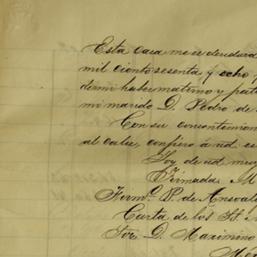 Esta Casa me es deudora
mil ciento sesenta y ocho p
de mi haber materno y pate
mi marido D. Pedro de
Con su consentimien
al Caler, confiero á ud. es
Soy de ud. muy
Firmada M
Firmº P. de Ansoate
Carta de los S.
Sor. D. Maximino